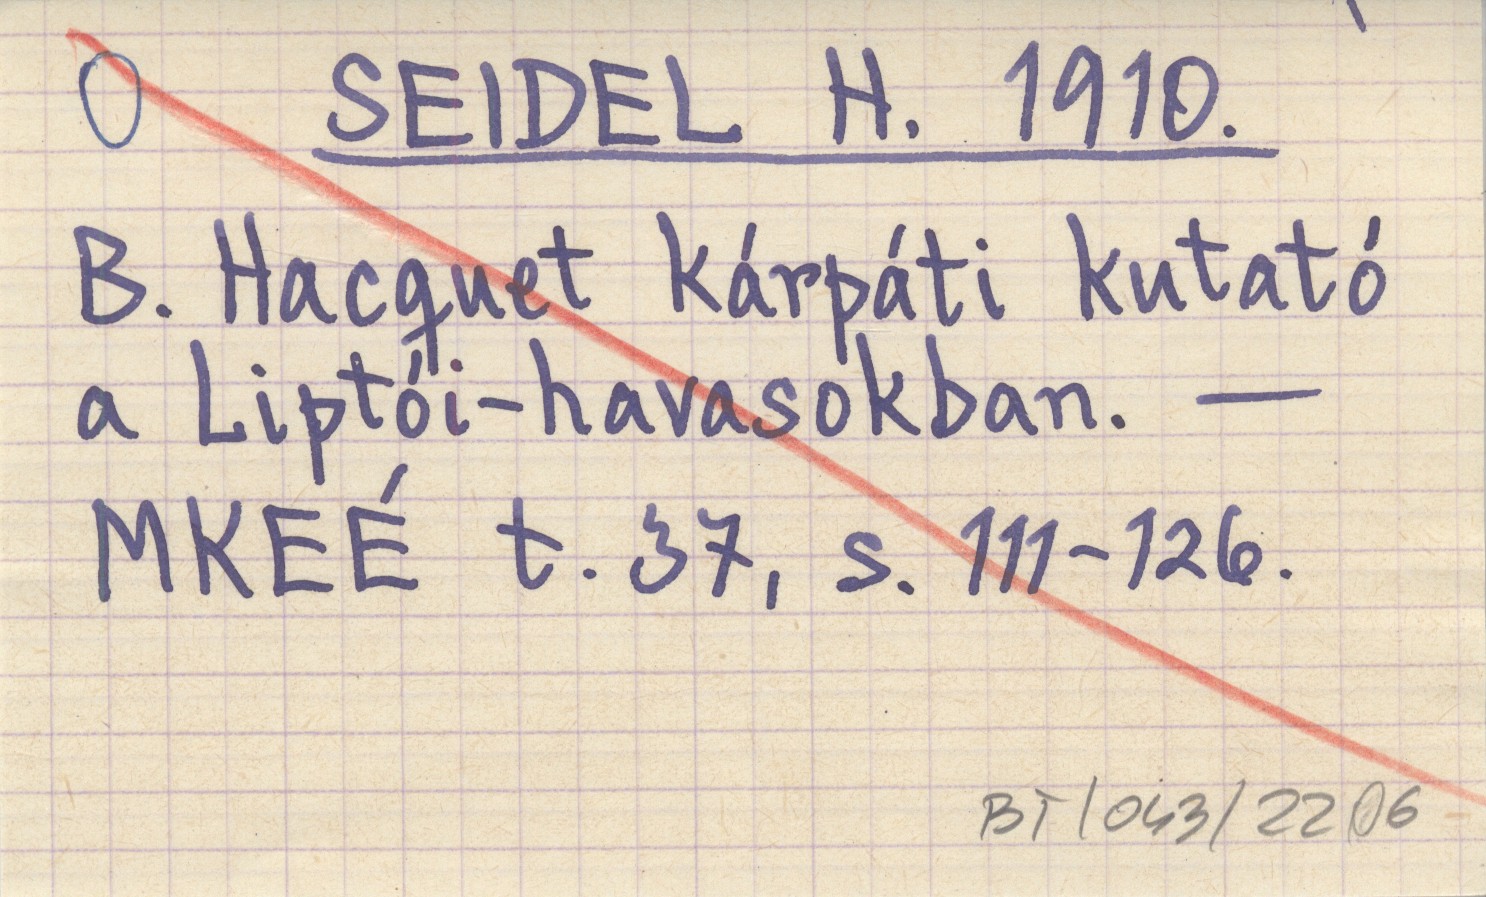 SEIDEL H. 1910.
B. Hacquet kárpáti kutató
a Liptói-havasokban. —
MKEÉ t. 37, s. 111-126.
BT/043/2206